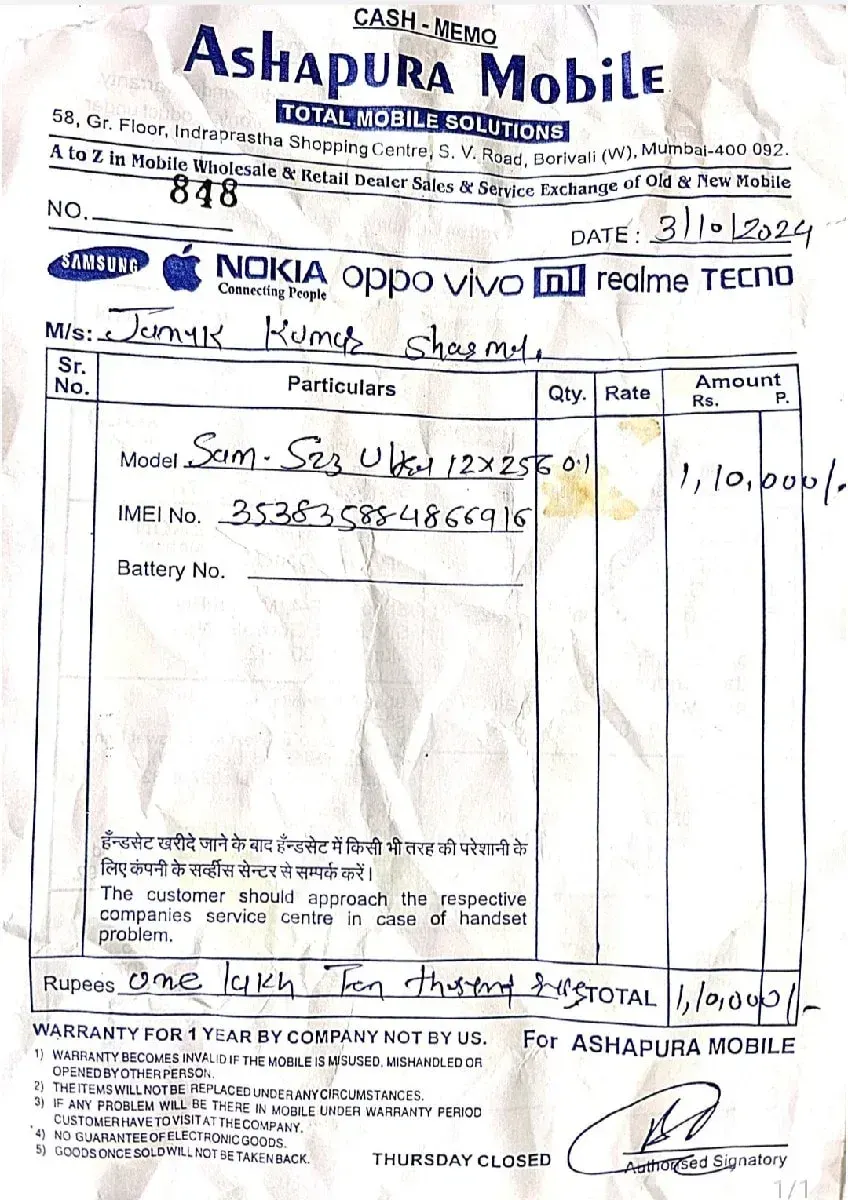 CASH - MEMO
ASHAPURA MOBILE
TOTAL MOBILE SOLUTIONS
58, Gr. Floor, Indraprastha Shopping Centre, S. V. Road, Borivali (W), Mumbai-400 092.
A to Z in Mobile Wholesale & Retail Dealer Sales & Service Exchange of Old & New Mobile
NO. 848
DATE : 3/10/2024
SAMSUNG NOKIA oppo vivo mi realme TECNO
Connecting People
M/s: Kumar Sharma
Sr. No. Particulars Qty. Rate Amount Rs. P.
Model Sam. S23 Ultra 12x256 01 1,10,000/-
IMEI No. 353835884866916
Battery No.
हॅन्डसेट खरीदे जाने के बाद हॅन्डसेट में किसी भी तरह की परेशानी के
लिए कंपनी के सर्व्हीस सेन्टर से सम्पर्क करें।
The customer should approach the respective
companies service centre in case of handset
problem.
Rupees one lakh Ten thousand TOTAL 1,10,000/-
WARRANTY FOR 1 YEAR BY COMPANY NOT BY US. For ASHAPURA MOBILE
1) WARRANTY BECOMES INVALID IF THE MOBILE IS MISUSED, MISHANDLED OR
OPENED BY OTHER PERSON.
2) THE ITEMS WILL NOT BE REPLACED UNDER ANY CIRCUMSTANCES.
3) IF ANY PROBLEM WILL BE THERE IN MOBILE UNDER WARRANTY PERIOD
CUSTOMER HAVE TO VISIT AT THE COMPANY.
4) NO GUARANTEE OF ELECTRONIC GOODS.
5) GOODS ONCE SOLD WILL NOT BE TAKEN BACK.
THURSDAY CLOSED
Authorised Signatory
1/1